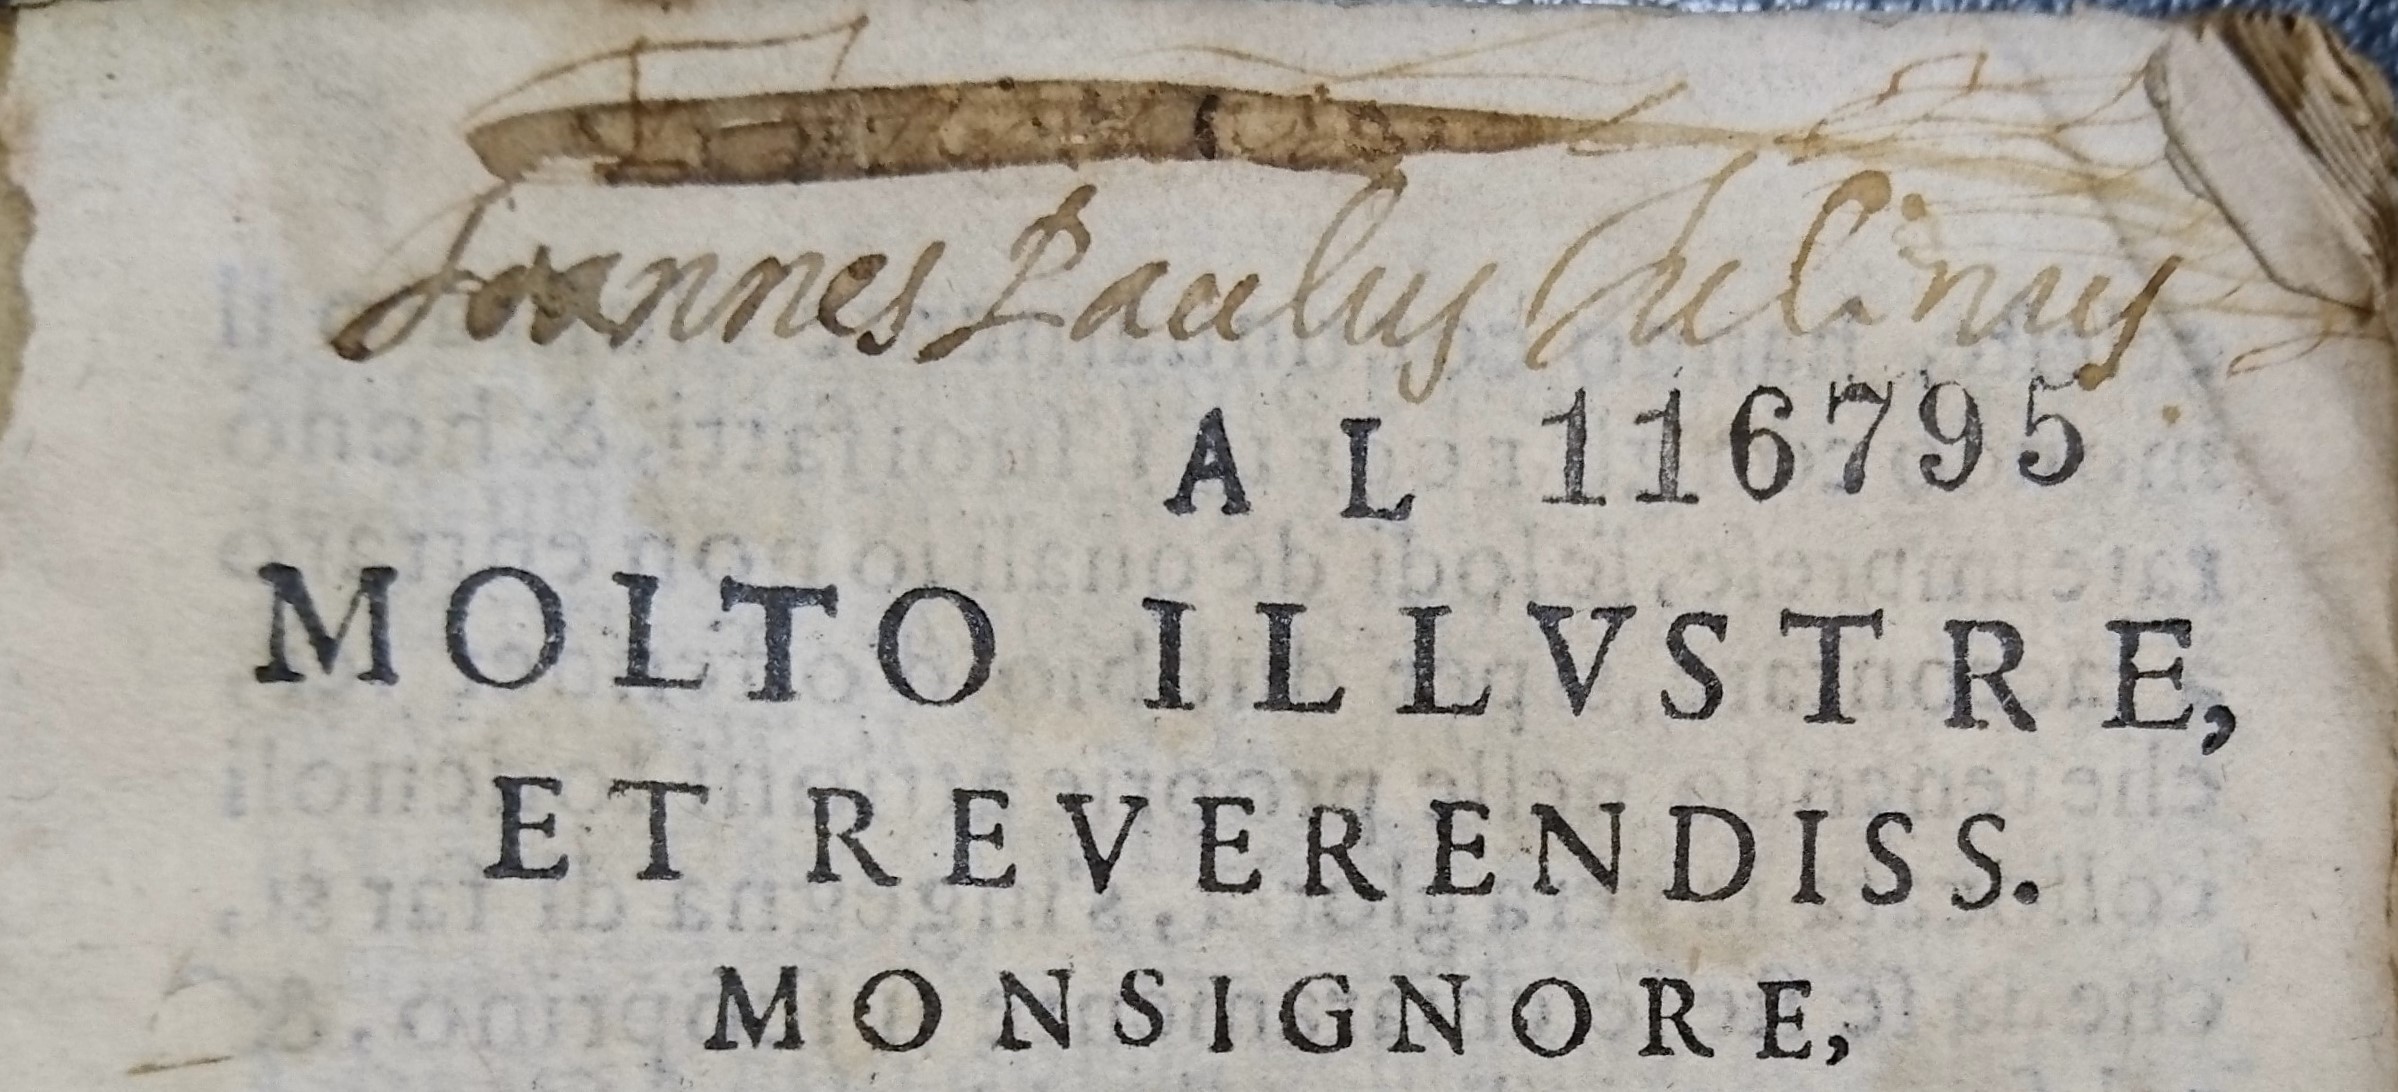 Joannes Paulus
A L 116795
MOLTO ILLVSTRE,
ET REVERENDISS.
MONSIGNORE,